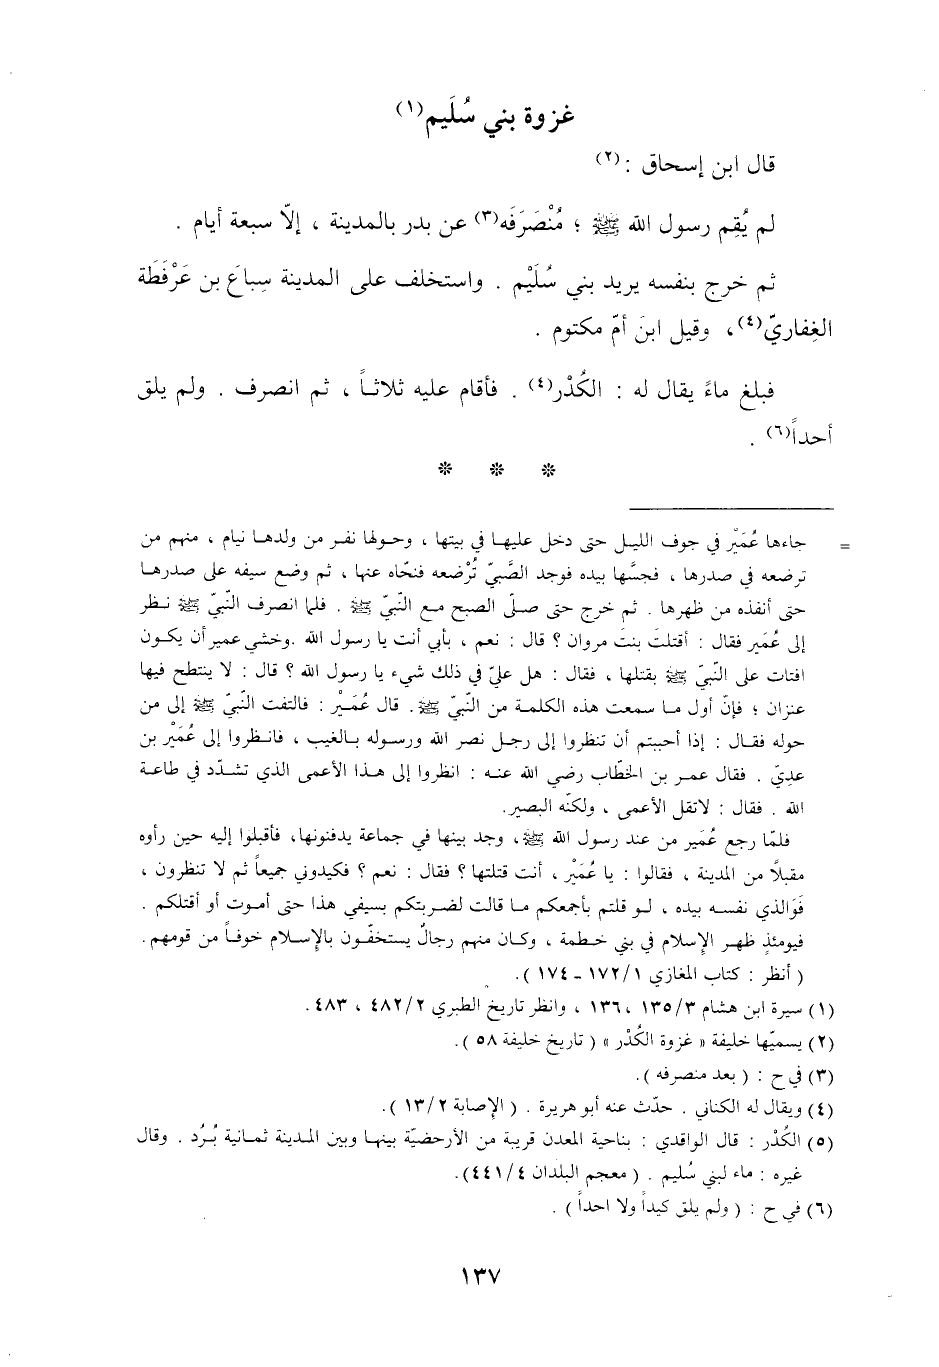 غزوة بني سُلَيم(١)
قال ابن إسحاق :(٢)
لم يُقِم رسول الله ﷺ ؛ مُنْصَرَفَه(٣) عن بدر بالمدينة ، إلّا سبعة أيام .
ثم خرج بنفسه يريد بني سُلَيْم . واستخلف على المدينة سِباعَ بن عَرْفَطَة
الغِفاريّ(٤)، وقيل ابنَ أمّ مكتوم .
فبلغ ماءً يقال له : الكُدْر(٤) . فأقام عليه ثلاثاً ، ثم انصرف . ولم يلق
أحداً(٦) .
* * *
= جاءها عُمَيْر في جوف الليل حتى دخل عليها في بيتها ، وحولها نفر من ولدها نيام ، منهم من
ترضعه في صدرها ، فجسَّها بيده فوجد الصَّبيّ تُرْضعه فنحّاه عنها ، ثم وضع سيفه على صدرها
حتى أنفذه من ظهرها . ثم خرج حتى صلّى الصبح مع النّبيّ ﷺ . فلما انصرف النّبيّ ﷺ نظر
إلى عُمَير فقال : أقتلتَ بنتَ مروان ؟ قال : نعم ، بأبي أنت يا رسول الله .وخشي عمير أن يكون
افتات على النّبيّ ﷺ بقتلها ، فقال : هل عليّ في ذلك شيء يا رسول الله ؟ قال : لا ينتطح فيها
عنزان ؛ فإنّ أول ما سمعت هذه الكلمة من النّبيّ ﷺ . قال عُمَيْر : فالتفت النّبيّ ﷺ إلى من
حوله فقال : إذا أحببتم أن تنظروا إلى رجل نصر الله ورسوله بالغيب ، فانظروا إلى عُمَيْر بن
عديّ . فقال عمر بن الخطّاب رضي الله عنه : انظروا إلى هذا الأعمى الذي تشدّد في طاعة
الله . فقال : لاتقل الأعمى ، ولكنّه البصير.
فلمّا رجع عُمَير من عند رسول الله ﷺ، وجد بنيها في جماعة يدفنونها، فأقبلوا إليه حين رأوه
مقبلاً من المدينة ، فقالوا : يا عُمَيْر ، أنت قتلتها ؟ فقال : نعم ؟ فكيدوني جميعاً ثم لا تنظرون ،
فَوَالذي نفسه بيده ، لو قلتم بأجمعكم ما قالت لضربتكم بسيفي هذا حتى أموت أو أقتلكم .
فيومئذٍ ظهر الإسلام في بني خطمة ، وكان منهم رجالٌ يستخفّون بالإسلام خوفاً من قومهم .
( أنظر : كتاب المغازي ١٧٢/١ - ١٧٤ ).
(١) سيرة ابن هشام ١٣٥/٣ ، ١٣٦ ، وانظر تاريخ الطبري ٤٨٢/٢ ، ٤٨٣ .
(٢) يسميّها خليفة « غزوة الكُدْر » ( تاريخ خليفة ٥٨ ).
(٣) في ح : ( بعد منصرفه ).
(٤) ويقال له الكناني . حدّث عنه أبو هريرة . ( الإصابة ١٣/٢ ).
(٥) الكُدْر : قال الواقدي : بناحية المعدن قريبة من الأرحضيّة بينها وبين المدينة ثمانية بُرُد . وقال
غيره : ماء لبني سُليم . ( معجم البلدان ٤٤١/٤).
(٦) في ح : ( ولم يلق كيداً ولا احداً ) .
١٣٧